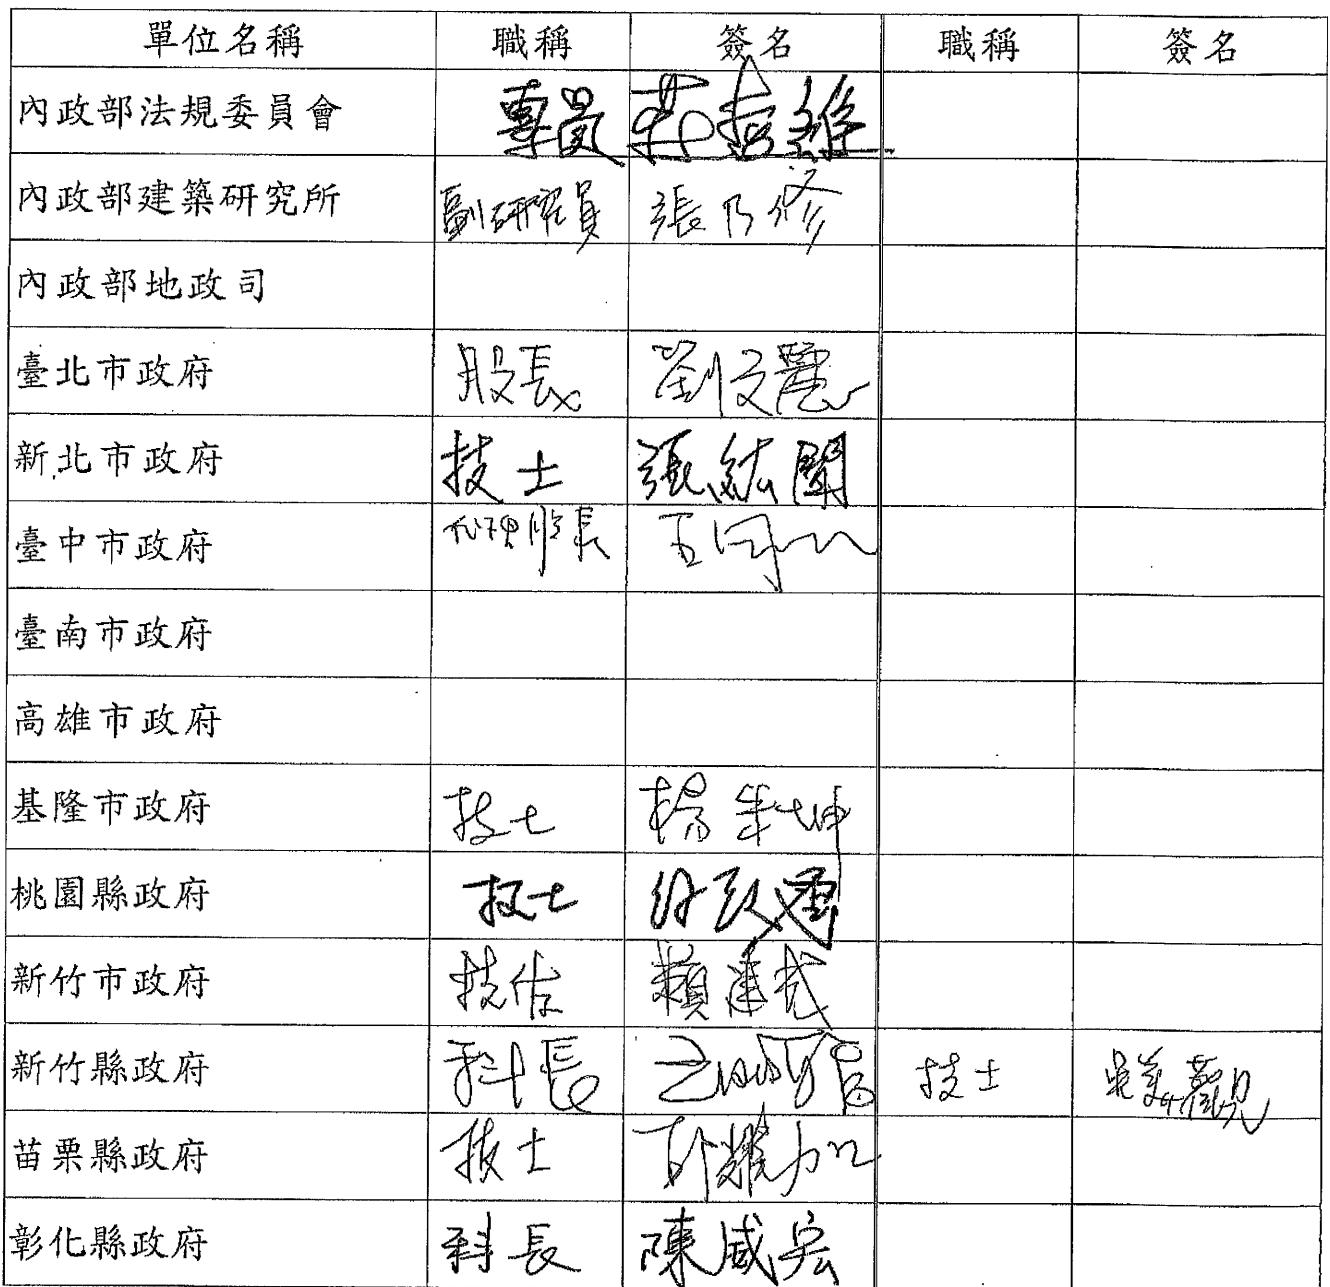 單位名稱 職稱 簽名 職稱 簽名
內政部法規委員會 專員
內政部建築研究所 副研究員 張乃修
內政部地政司
臺北市政府 股長 劉文麗
新北市政府 技士 張紘聞
臺中市政府 代理股長 王
臺南市政府
高雄市政府
基隆市政府 技士 楊 坤
桃園縣政府 技士
新竹市政府 技佐 賴建
新竹縣政府 科長 技士 吳美觀
苗栗縣政府 技士
彰化縣政府 科長 陳威宏